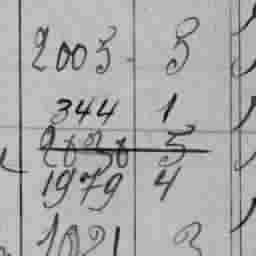 2003 5
344 1
1979 4
1021 3